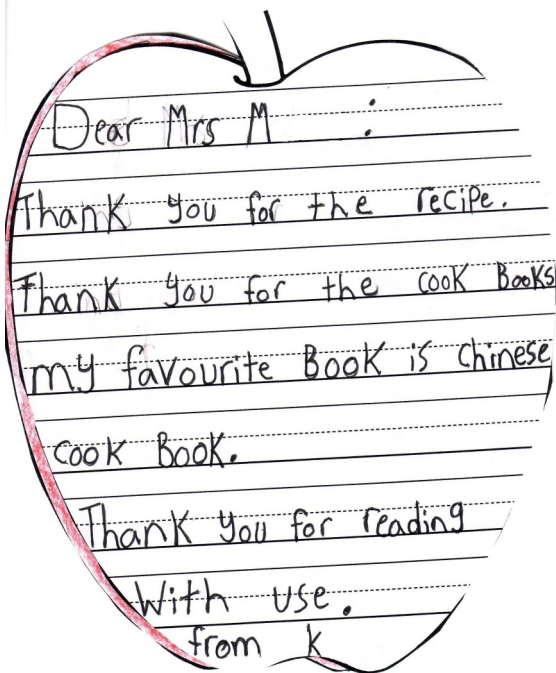 Dear Mrs M :
Thank you for the recipe.
Thank you for the cook Books
my favourite Book is Chinese
cook Book.
Thank you for reading
With use.
from K